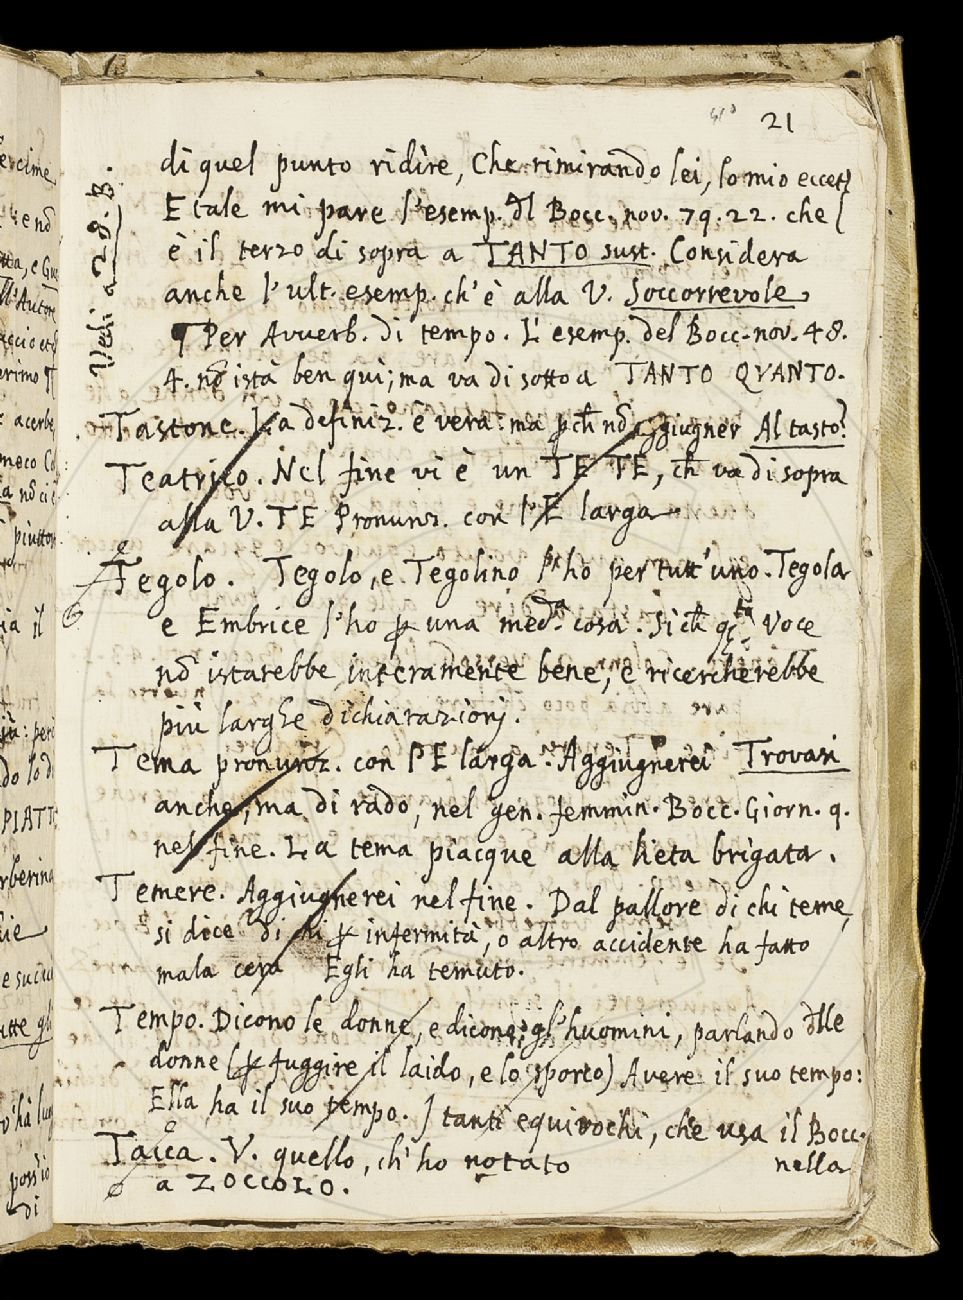 21
di quel punto ridire, Che rimirando lei, lo mio eccet
E tale mi pare l'esemp. dl Bocc. nov. 79. 22. che
è il terzo di sopra a TANTO sust. Considera
anche l'ult. esemp. ch'è alla V. Soccorrevole.
¶ Per Avverb. di tempo. L'esemp. del Bocc. nov. 48.
4. nō istà ben qui; ma va di sotto a TANTO QVANTO.
Vedi a 28. B.
Tastone. La definiz. è vera: ma ꝑch̄ nō aggiugner Al tasto?
Teatrico. Nel fine vi è un TE TE, ch̄ va di sopra
alla V. TE Pronunz. con l'E larga.
Tegolo. Tegolo, e Tegolino l'ho per tutt'uno. Tegola
e Embrice l'ho ꝑ una med.a cosa. Sich̄ q.ta Voce
nō istarebbe interamente bene, e ricercherebbe
più larghe dichiarazionj.
Tema pronunz. con l'E larga. Aggiugnerei Trovasi
anche, ma di rado, nel gen. femmin. Bocc. Giorn. 9.
nel fine. La tema piacque alla lieta brigata.
Temere. Aggiugnerei nel fine. Dal pallore di chi teme,
si dice di chi ꝑ infermità, o altro accidente ha fatto
mala cera Egli ha temuto.
Tempo. Dicono le donne, e dicono gl'huomini, parlando dlle
donne (ꝑ fuggire il laido, e lo sporco) Avere il suo tempo:
Ella ha il suo tempo. J tanti equivochi, che usa il Bocc.
nella
Tacca. V. quello, ch'ho notato
a ZOCCOLO.